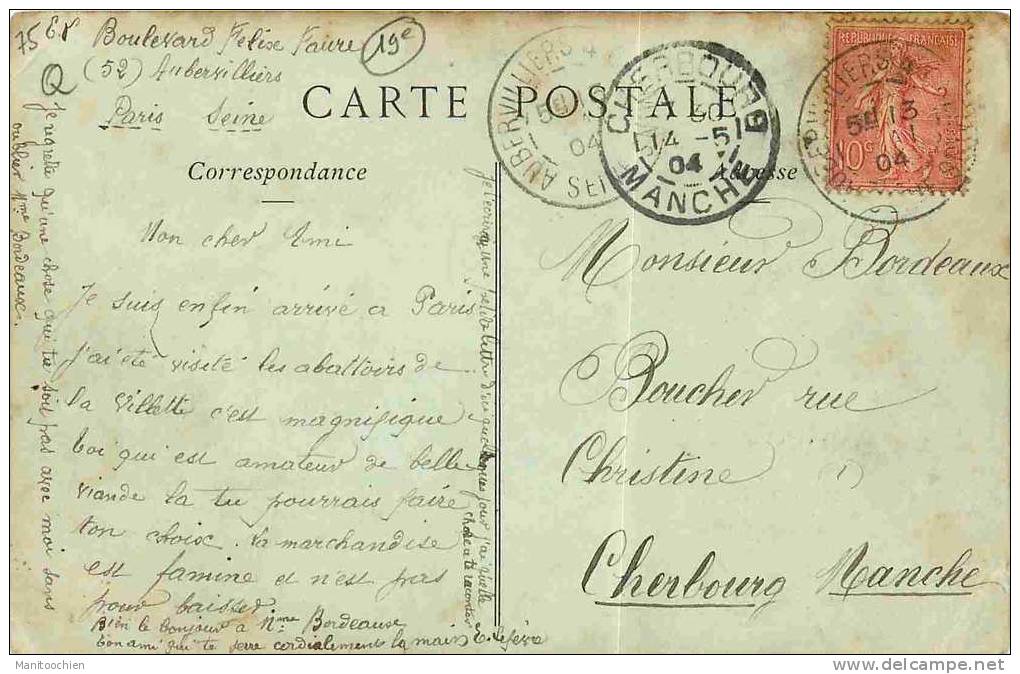 75 E.V
Boulevard Felix Faure
19e
(52) Aubervilliers
Paris Seine
CARTE POSTALE
Correspondance
Adresse
REPUBLIQUE FRANÇAISE
10c
AUBERVILLIERS
04
CHERBOURG
14 -5
04
MANCHE
13
04
Mon cher Ami
Je suis enfin arrivé a Paris
j'ai été visité les abattoirs de
la Villette c'est magnifique
toi qui est amateur de belle
viande la tu pourrais faire
ton choix. la marchandise
est famine et n'est pas
pour baisser
Bien le bonjour a Mme Bordeaux
ton ami qui te serre cordialement la main E. Lefèvre
Je regrette qu'une chose qui tu soit pas avec moi sans
oublier Mme Bordeaux.
j'ecrirai une petite lettre d'ici quelques jour j'ai quelle
chose a te raconter
Monsieur Bordeaux
Boucher rue
Christine
Cherbourg Manche
Manitoochien
www.delcampe.net